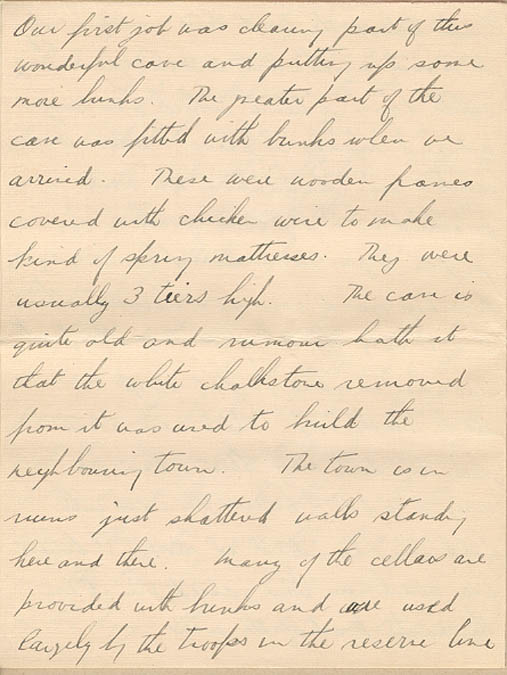 Our first job was clearing part of this
wonderful cave and putting up some
more bunks. The greater part of the
cave was fitted with bunks when we
arrived. These were wooden frames
covered with chicken wire to make
kind of spring mattresses. They were
usually 3 tiers high. The cave is
quite old and rumour hath it
that the white chalkstone removed
from it was used to build the
neighbouring town. The town is in
ruins just shattered walls standing
here and there. Many of the cellars are
provided with bunks and are used
largely by the troops in the reserve line